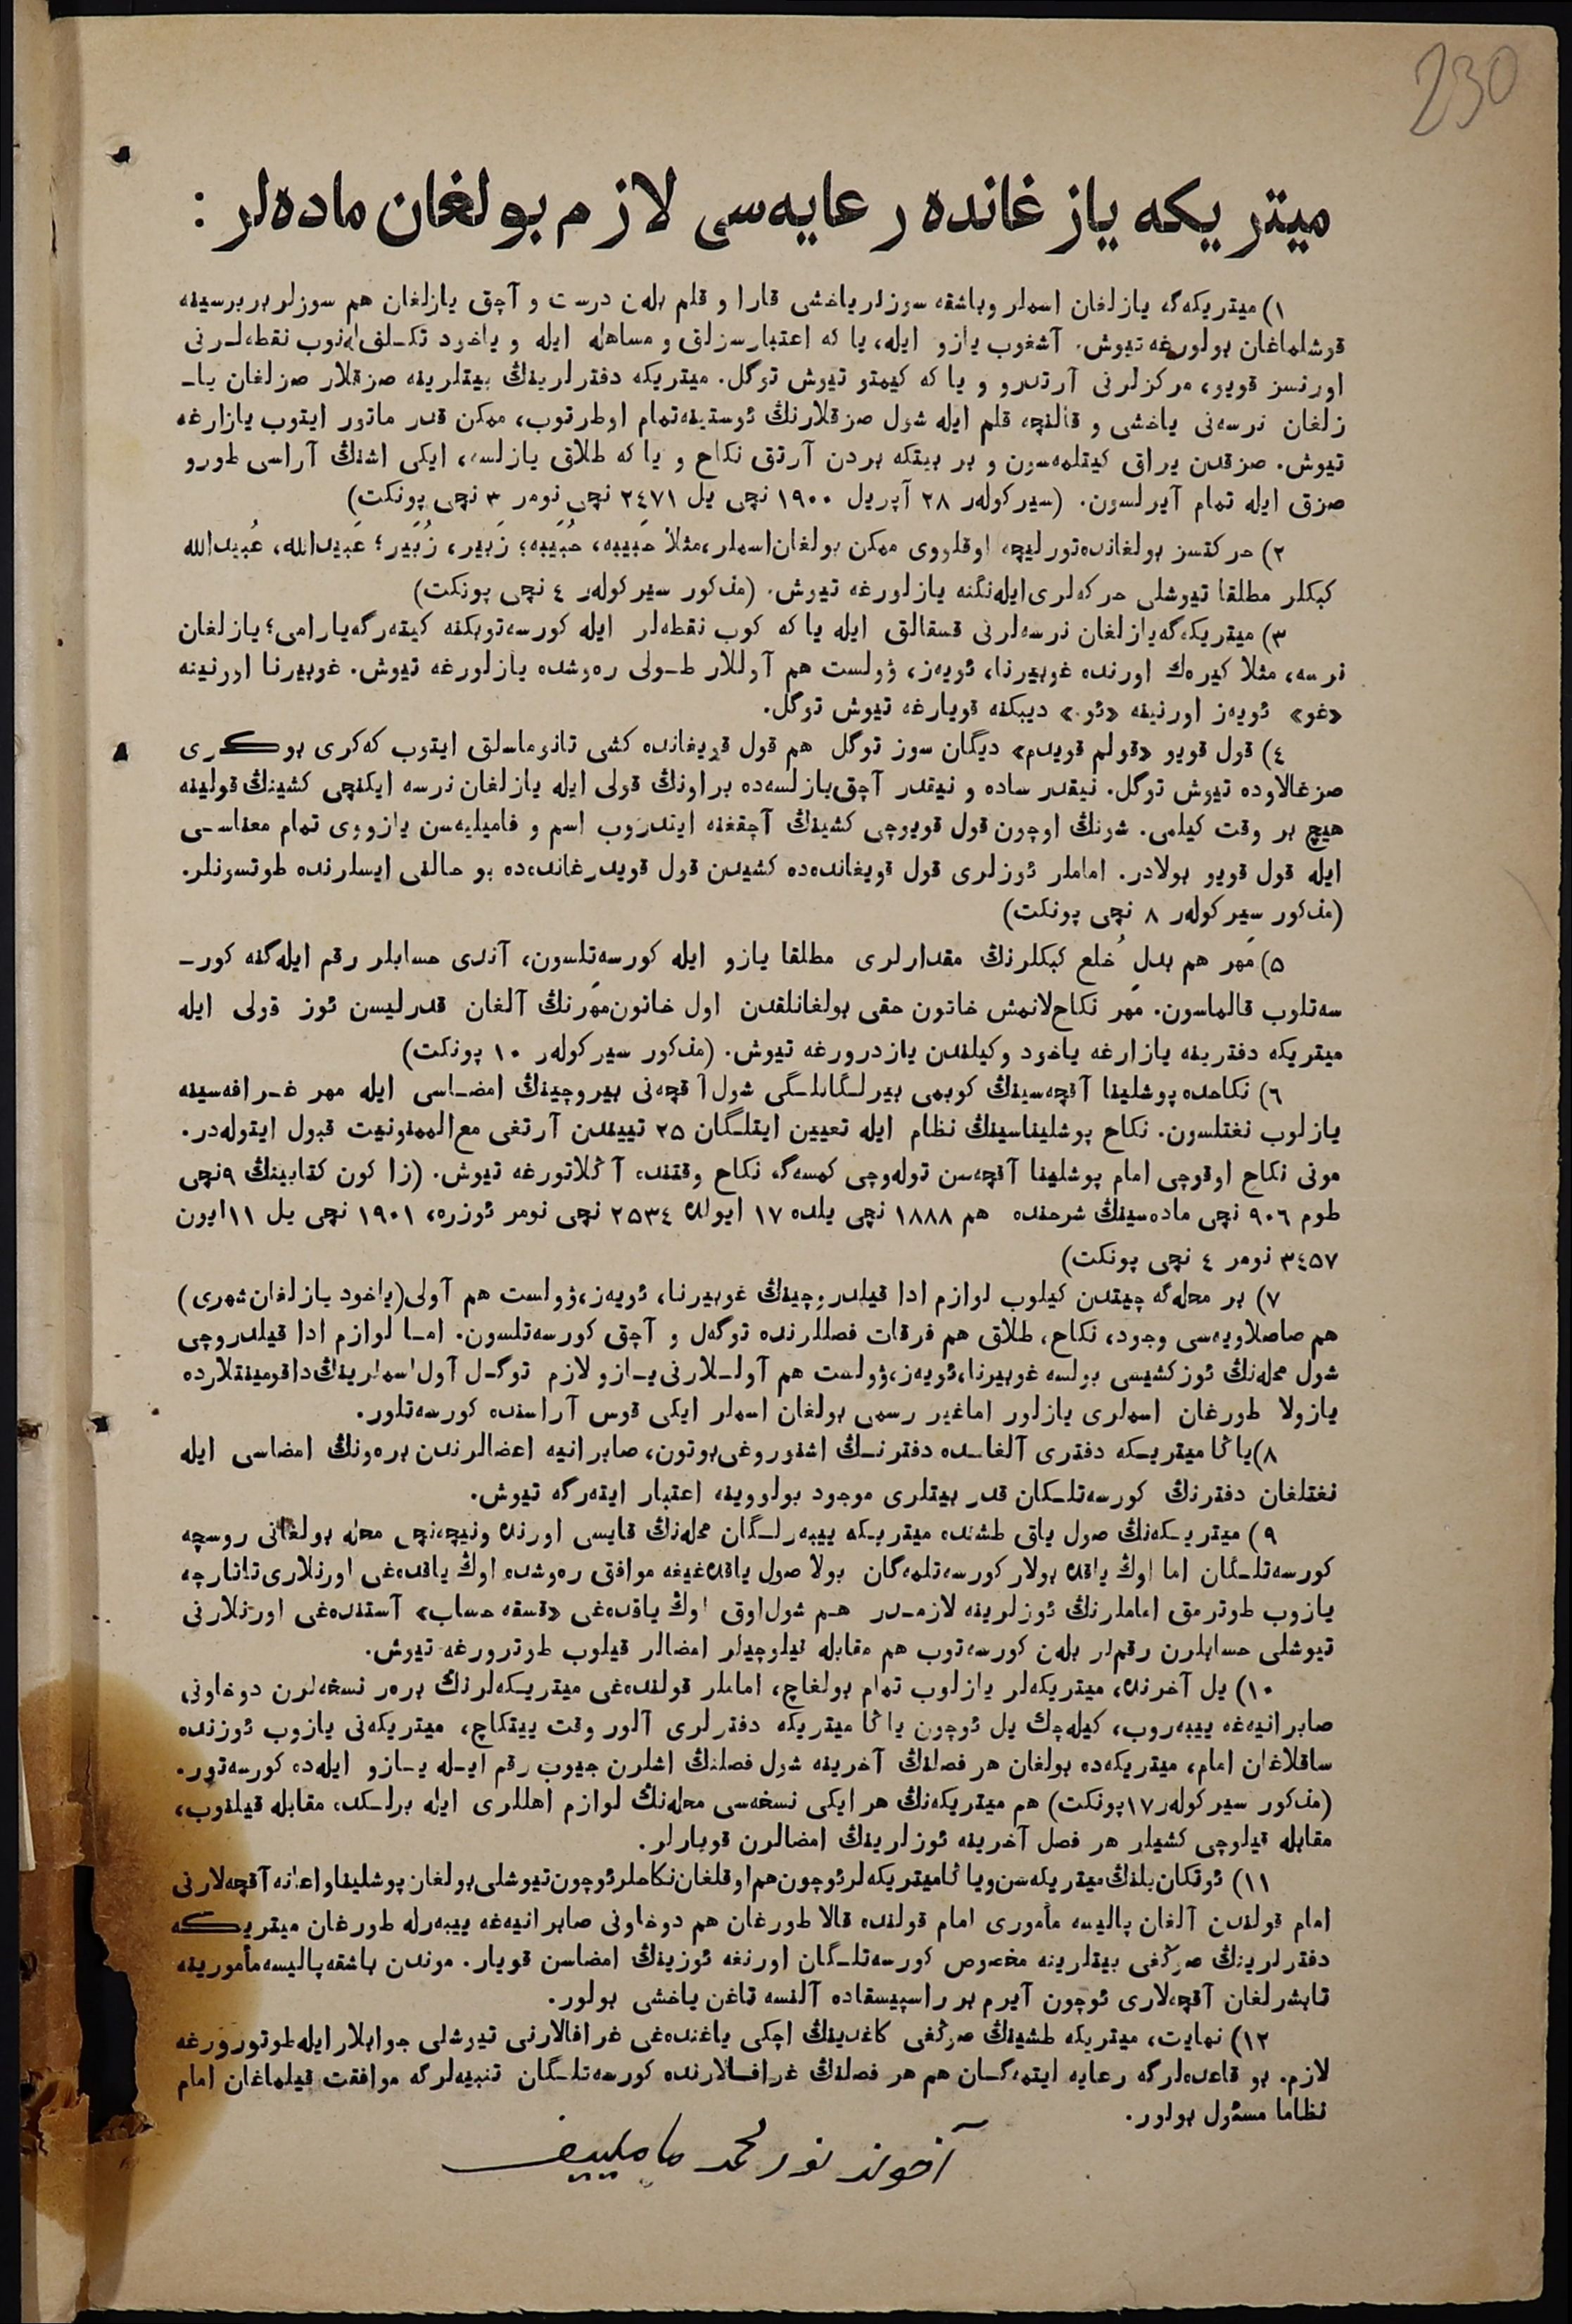 230
میتریكه یازغانده رعایه‌سی لازم بولغان ماده‌لر :
١) میتریكه‌گه یازلغان اسملر وباشقه سوزلر یاخشی قارا و قلم بله‌ن درست و آچق یازلغان هم سوزلر بربرسینه
قوشلماغان بولورغه تیوش. آشغوب یازو ایله، یا كه اعتبارسزلق و مساهله ایله و یاخود تكـلف له‌نوب نقطه‌لـرنی
اورنسز قویو، مركزلرنی آرتدرو و یا كه كیمتو تیوش توگل. میتریكه دفترلرینڭ بیتلرینه صزقلار صزلغان یاـ
زلغان نرسه‌نی یاخشی و قالنچه قلم ایله شول صزقلارنڭ ئوستینه‌تمام اوطرتوب، ممكن قدر ماتور ایتوب یازارغه
تیوش. صزقدن یراق كیتلمه‌سون و بر بیتكه بردن آرتق نكاح و یا كه طلاق یازلسه، ایكی اشنڭ آراسی طورو
صزق ایله تمام آیرلسون. (سیركولەر ٢٨ آپریل ١٩٠٠ نچی یل ٢٤٧١ نچی نومر ٣ نچی پونكت)
٢) حركتسز بولغانده‌تورلیچه اوقلووی ممكن بولغان‌اسملر،مثلا حَبیبه، حُبَیبه؛ زَبیر، زُبَیر؛ عَبیدالله، عُبیدالله
كبكلر مطلقا تیوشلی حركه‌لری‌ایله‌نگنه یازلورغه تیوش. (مذكور سیركولەر ٤ نچی پونكت)
٣) میتریكه‌گه‌یازلغان نرسه‌لرنی قسقالق ایله یا كه كوب نقطه‌لر ایله كورسه‌توبكنه كیته‌رگه‌یارامی؛ یازلغان
نرسه، مثلا كیره‌ك اورنده غوبیرنا، ئویه‌ز، ؤولست هم آوللار طـولی ره‌وشده یازلورغه تیوش. غوبیرنا اورنینه
«غو» ئویه‌ز اورنینه «ئو.» دیبكنه قویارغه تیوش توگل.
٤) قول قویو «قولم قویدم» دیگان سوز توگل هم قول قویغانده كشی تانوماسلق ایتوب كه‌كری بوكری
صزغالاوده تیوش توگل. نیقدر ساده و نیقدر آچق‌یازلسه‌ده براونڭ قولی ایله یازلغان نرسه ایكنچی كشینڭ قولینه
هیچ بر وقت كیلمی. شونڭ اوچون قول قویوچی كشینڭ آچقغنه ایتدروب اسم و فامیلیه‌سن یازووی تمام معناسـی
ایله قول قویو بولادر. اماملر ئوزلری قول قویغانده‌ده كشیدن قول قویدرغانده‌ده بو حالنی ایسلرنده طوتسونلر.
(مذكور سیركولەر ٨ نچی پونكت)
٥) مَهر هم بدلِ خُلع كبكلرنڭ مقدارلری مطلقا یازو ایله كورسه‌تلسون، آندی حسابلر رقم ایله‌گنه كورـ
سه‌تلوب قالماسون. مَهر نكاح‌لانمش خاتون حقی بولغانلقدن اول خاتون‌مَهرنڭ آلغان قدرلیسن ئوز قولی ایله
میتریكه دفترینه یازارغه یاخود وكیلندن یازدرورغه تیوش. (مذكور سیركولەر ١٠ پونكت)
٦) نكاحده پوشلینا آقچه‌سینڭ كوبمی بیرلـگانلـگی شول آقچه‌نی بیروچینڭ امضـاسی ایله مهر غـرافه‌سینه
یازلوب نغتلسون. نكاح پوشلیناسینڭ نظام ایله تعیین ایتلـگان ٢٥ تییندن آرتغی مع‌الممنونیت قبول ایتوله‌در.
مونی نكاح اوقوچی امام پوشلینا آقچه‌سن توله‌وچی كمسه‌گه نكاح وقتنده آڭلاتورغه تیوش. (زاكون كتابینڭ ٩نچی
طوم ٩٠٦ نچی ماده‌سینڭ شرحنده هم ١٨٨٨ نچی یلده ١٧ ایولده ٢٥٣٤ نچی نومر ئوزره، ١٩٠١ نچی یل ١١ایون
٣٤٥٧ نومر ٤ نچی پونكت)
٧) بر محله‌گه چیتدن كیلوب لوازم ادا قیلدروچینڭ غوبیرنا، ئویه‌ز،ؤولست هم آولی(یاخود یازلغان‌شهری)
هم صاصلاویه‌سی وجود، نكاح، طلاق هم فرقات فصللرنده توگه‌ل و آچق كورسه‌تلسون. امـا لوازم ادا قیلدروچی
شول محله‌نڭ ئوزكشیسی بولسه غوبیرنا،ئویه‌ز،ؤولست هم آولـلارنی‌یـازو لازم توگـل آول‌اسملرینڭ‌داقومینتلارده
یازولا طورغان اسملری یازلور اماغیر رسمی بولغان اسملر ایكی قوس آراسنده كورسه‌تلور.
٨)یاڭا میتریـكه دفتری آلغانـده دفترنـڭ اشنوروغی‌بوتون، صابرانیه اعضالرندن بره‌ونڭ امضاسی ایله
نغتلغان دفترنڭ كورسه‌تلـگان قدر بیتلری موجود بولووینه اعتبار ایته‌رگه تیوش.
٩) میتریـكه‌نڭ صول یاق طشنده میتریـكه ییبه‌رلـگان محله‌نڭ قایسی اورنده ونیچه‌نچی محله بولغانی روسچه
كورسه‌تلـگان اما اوڭ یاقده بولار كورسه‌تلمه‌گان بولا صول یاقده‌غیغه موافق ره‌وشده اوڭ یاقده‌غی اورنلاری‌تاتارچه
یازوب طوترمق اماملرنڭ ئوزلرینه لازمـدر هـم شول‌اوق اوڭ یاقده‌غی «قسقه حساب» آستنده‌غی اورنلارنی
تیوشلی حسابلرن رقم‌لر بله‌ن كورسه‌توب هم مقابله قیلوچیلر امضالر قیلوب طوترورغه تیوش.
١٠) یل آخرنده، میتریكه‌لر یازلوب تمام بولغاچ، اماملر قولنده‌غی میتریـكه‌لرنڭ بره‌ر نسخه‌لرن دوخاونی
صابرانیه‌غه ییبه‌روب، كیله‌چك یل ئوچون یاڭا میتریكه دفترلری آلور وقت ییتكاچ، میتریكه‌نی یازوب ئوزنده
ساقلاغان امام، میتریكه‌ده بولغان هر فصلنڭ آخرینه شول فصلنڭ اشلرن جیوب رقم ایـله یـازو ایله‌ده كورسه‌تور.
(مذكور سیركولەر١٧پونكت) هم میتریكه‌نڭ هر ایكی نسخه‌سی محله‌نڭ لوازم اهللری ایله برلـكده مقابله قیلنوب،
مقابله قیلوچی كشیلر هر فصل آخرینه ئوزلرینڭ امضالرن قویارلر.
١١) ئوتكان‌یلنڭ‌میتریكه‌سن‌ویاڭامیتریكه‌لرئوچون‌هم‌اوقلغان‌نكاحلرئوچون‌تیوشلی‌بولغان‌پوشلیناواعانه‌آقچه‌لارنی
امام قولندن آلغان پالیسه مأموری امام قولنده قالا طورغان هم دوخاونی صابرانیه‌غه ییبه‌رله طورغان میتریكه
دفترلرینڭ صوڭغی بیتلرینه مخصوص كورسه‌تلـگان اورنغه ئوزینڭ امضاسن قویار. موندن باشقه‌پالیسه‌مأمورینه
تابشرلغان آقچه‌لاری ئوچون آیرم بر راسپیسقاده آلنسه تاغن یاخشی بولور.
١٢) نهایت، میتریكه طشینڭ صوڭغی كاغدینڭ اچكی یاغنده‌غی غرافالارنی تیوشلی جوابلارایله‌طوتورورغه
لازم. بو قاعده‌لرگه رعایه ایتمه‌گـان هم هر فصلنڭ غرافـالارنده كورسه‌تلـگان تنبیه‌لرگه موافقت قیلماغان امام
نظاما مسئول بولور.
آخوند نورمحمد ماملییف